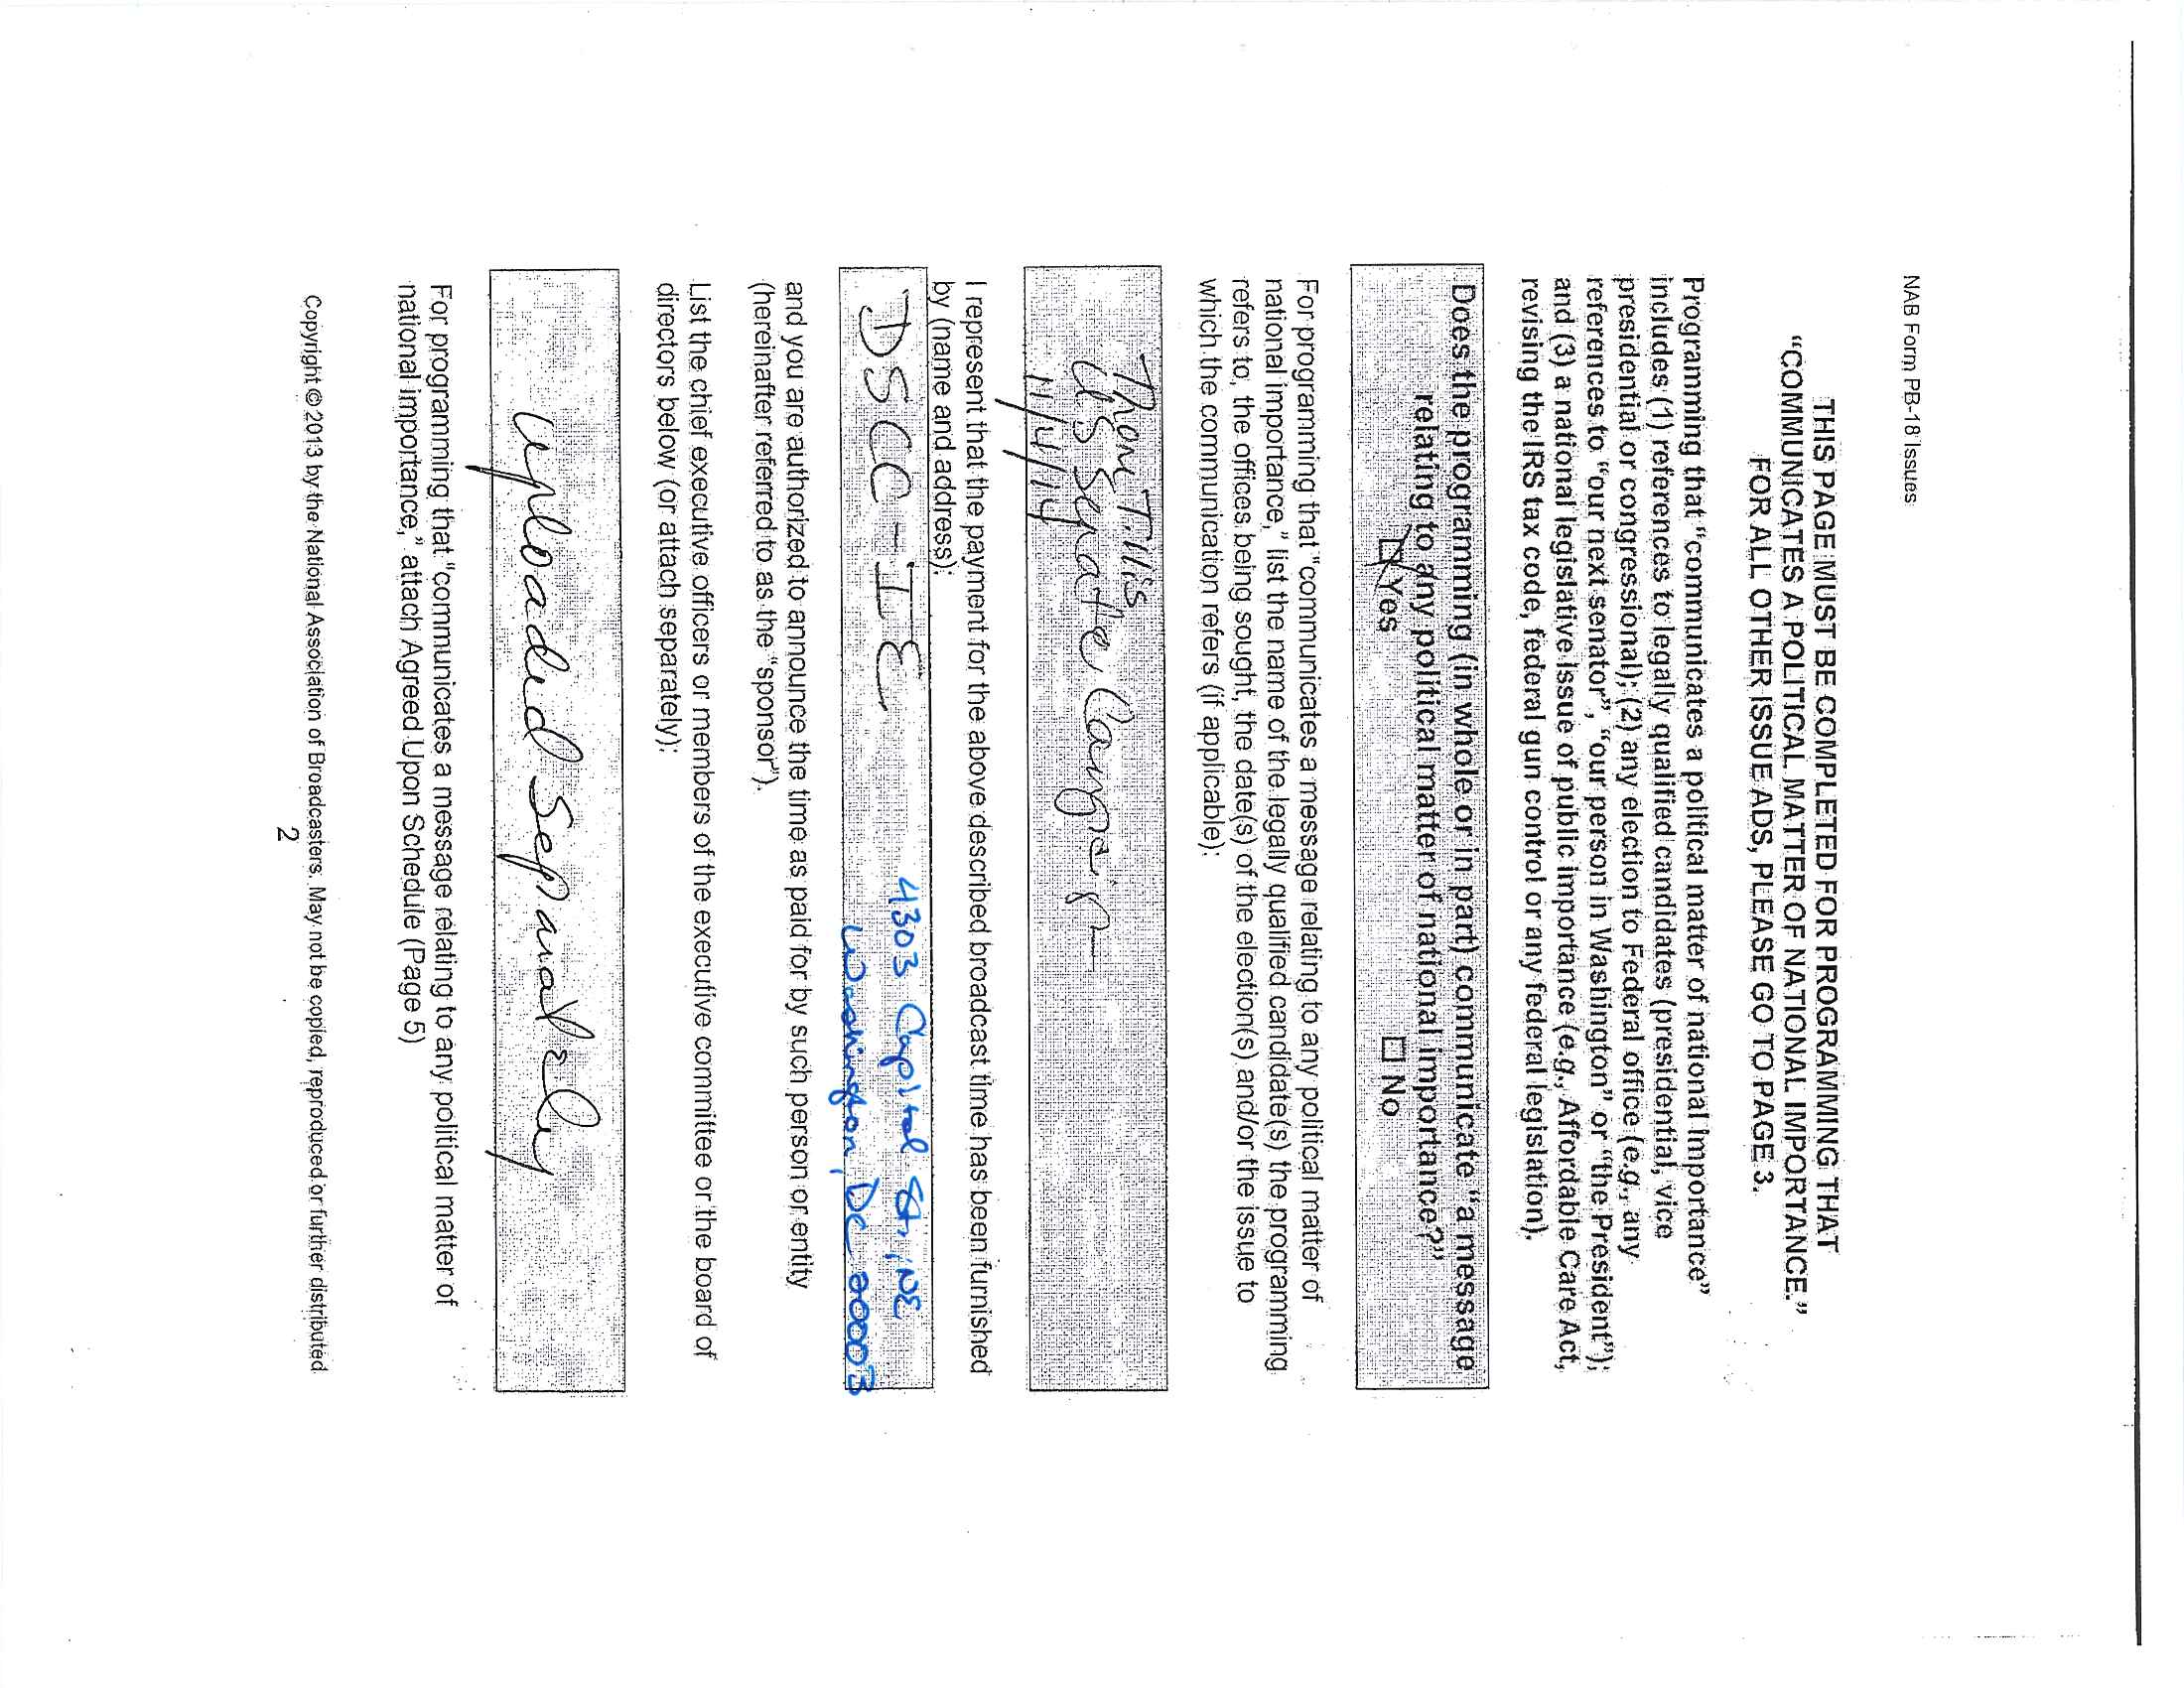 NAB Form PB-18 Issues
THIS PAGE MUST BE COMPLETED FOR PROGRAMMING THAT
“COMMUNICATES A POLITICAL MATTER OF NATIONAL IMPORTANCE.”
FOR ALL OTHER ISSUE ADS, PLEASE GO TO PAGE 3.
Programming that “communicates a political matter of national importance”
includes (1) references to legally qualified candidates (presidential, vice
presidential or congressional); (2) any election to Federal office (e.g., any
references to “our next senator”, “our person in Washington” or “the President”);
and (3) a national legislative issue of public importance (e.g., Affordable Care Act,
revising the IRS tax code, federal gun control or any federal legislation).
Does the programming (in whole or in part) communicate “a message
relating to any political matter of national importance?”
Yes No
For programming that “communicates a message relating to any political matter of
national importance,” list the name of the legally qualified candidate(s) the programming
refers to, the offices being sought, the date(s) of the election(s) and/or the issue to
which the communication refers (if applicable):
Thom Tillis
US Senate Campaign
11/4/14
I represent that the payment for the above described broadcast time has been furnished
by (name and address):
DSCC-IE 4303 Capital St, NE
Washington, DC 20003
and you are authorized to announce the time as paid for by such person or entity
(hereinafter referred to as the “sponsor”).
List the chief executive officers or members of the executive committee or the board of
directors below (or attach separately):
Uploaded Separately
For programming that “communicates a message relating to any political matter of
national importance,” attach Agreed Upon Schedule (Page 5)
Copyright © 2013 by the National Association of Broadcasters. May not be copied, reproduced or further distributed.
2